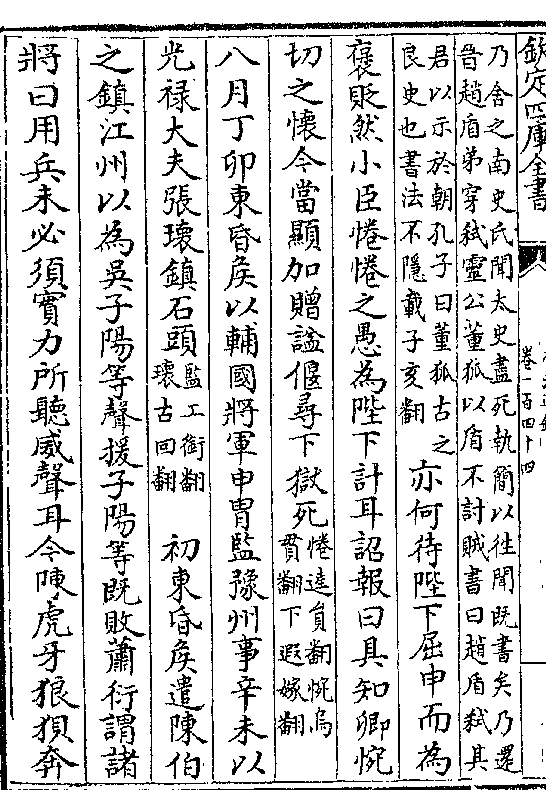 欽定四庫全書
卷一百四十四
乃舍之南史氏聞太史盡死執簡以徃聞既書矣乃還
晉趙盾弟穿弑靈公董狐以盾不討賊書曰趙盾弑其
君以示於朝孔子曰董狐古之
良史也書法不隱載子亥翻
亦何待陛下屈申而為
襃貶然小臣惓惓之愚為陛下計耳詔報曰具知卿惋
切之懷今當顯加贈謚偃尋下獄死
惓逵貟翻惋烏
貫翻下遐嫁翻
八月丁卯東昏侯以輔國將軍申胄監豫州事辛未以
光禄大夫張瓌鎮石頭
監工銜翻
瓌古回翻
初東昏侯遣陳伯
之鎮江州以為吳子陽等聲援子陽等既敗蕭衍謂諸
將曰用兵未必須實力所聽威聲耳今陳虎牙狼狽奔